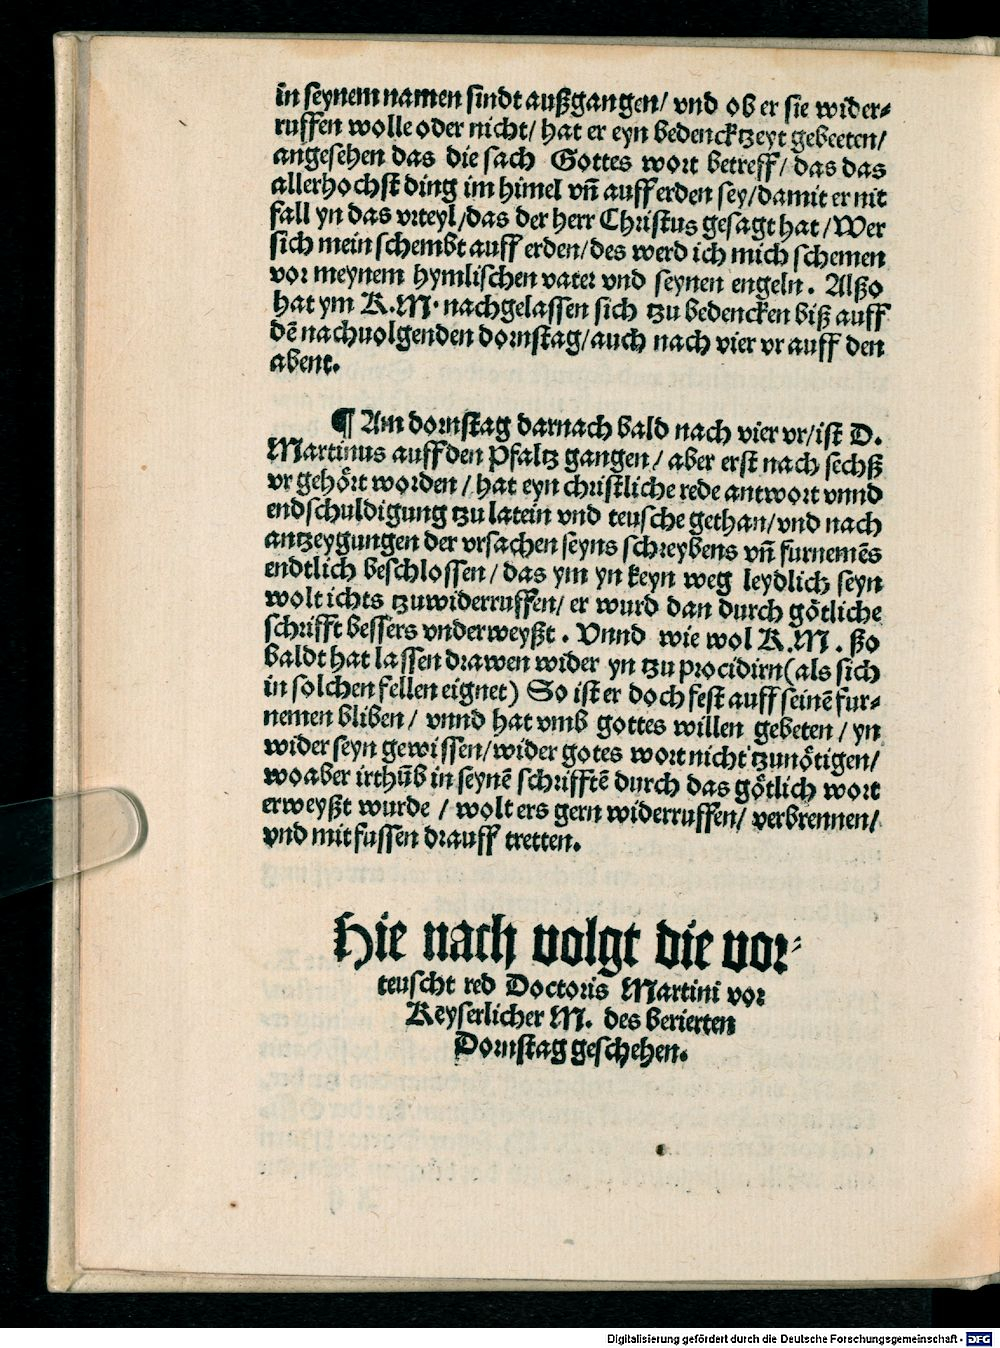 in seynem namen sindt außgangen/ vnd ob er sie wider⸗
ruffen wolle oder nicht/ hat er eyn bedencktzeyt gebeeten/
angesehen das die sach Gottes wort betreff/ das das
allerhochst ding im himel vñ auff erden sey/damit er nit
fall yn das vrteyl/das der herr Christus gesagt hat/Wer
sich mein schembt auff erden/des werd ich mich schemen
vor meynem hymlischen vater vnd seynen engeln. Alßo
hat ym K.M. nachgelassen sich tzu bedencken biß auff
dē nachuolgenden dornstag/auch nach vier vr auff den
abent.
¶ Am dornstag darnach bald nach vier vr/ist D.
Martinus auff den Pfaltz gangen/ aber erst nach sechß
vr gehört worden/ hat eyn christliche rede antwort vnnd
endschuldigung tzu latein vnd teusche gethan/vnd nach
antzeygungen der vrsachen seyns schreybens vñ furnemēs
endtlich beschlossen/ das ym yn keyn weg leydlich seyn
wolt ichts tzuwiderruffen/ er wurd dan durch götliche
schrifft bessers vnderweyßt. Vnnd wie wol K.M. ßo
baldt hat lassen drawen wider yn tzu procidirn(als sich
in solchen fellen eignet) So ist er doch fest auff seinē fur⸗
nemen bliben/ vnnd hat vmb gottes willen gebeten/ yn
wider seyn gewissen/wider gotes wort nicht tzunötigen/
wo aber irthūb in seynē schrifftē durch das götlich wort
erweyßt wurde/ wolt ers gern widerruffen/ verbrennen/
vnd mit fussen drauff tretten.
Hie nach volgt die vor⸗
teuscht red Doctoris Martini vor
Keyserlicher M. des berierten
Dornstag geschehen.
Digitalisierung gefördert durch die Deutsche Forschungsgemeinschaft - DFG